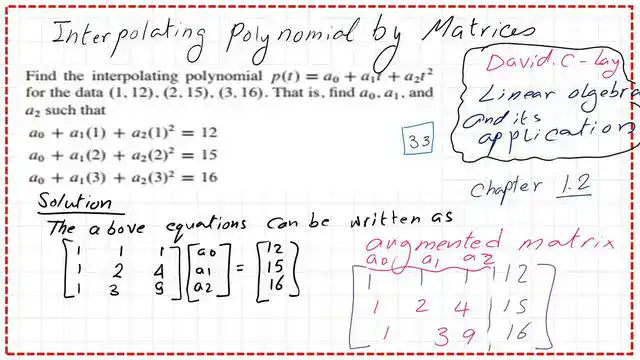 Interpolating Polynomial by Matrices
Find the interpolating polynomial p(t) = a₀ + a₁t + a₂t²
for the data (1, 12), (2, 15), (3, 16). That is, find a₀, a₁, and
a₂ such that
a₀ + a₁(1) + a₂(1)² = 12
a₀ + a₁(2) + a₂(2)² = 15
a₀ + a₁(3) + a₂(3)² = 16
33
David.C-Lay
Linear algebra
and its
application
Chapter 1.2
Solution
The above equations can be written as
[1 1 1] [a₀] = [12]
[1 2 4] [a₁] = [15]
[1 3 9] [a₂] = [16]
augmented matrix
a₀ a₁ a₂
1 1 1 | 12
1 2 4 | 15
1 3 9 | 16